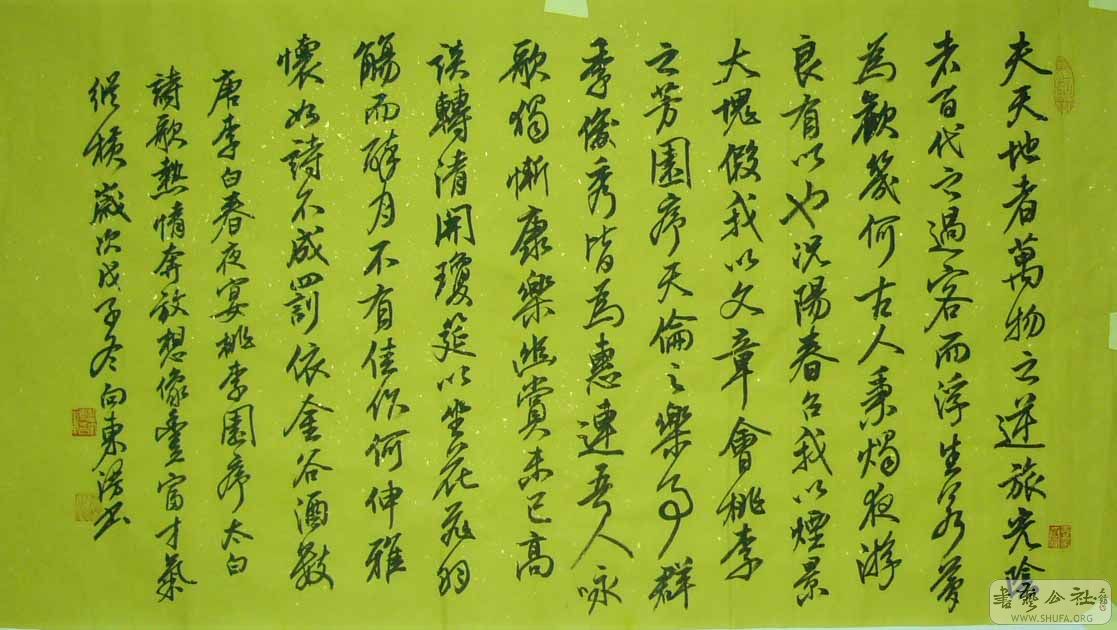 夫天地者萬物之逆旅光陰
者百代之過客而浮生若夢
為歡幾何古人秉燭夜游
良有以也況陽春召我以煙景
大塊假我以文章會桃李
之芳園序天倫之樂事群
季俊秀皆為惠連吾人咏
歌獨慚康樂幽賞未已高
談轉清開瓊筵以坐花飛羽
觴而醉月不有佳作何伸雅
懷如詩不成罰依金谷酒數
唐李白春夜宴桃李園序太白
詩歌熱情奔放想像豐富才氣
縱橫歲次戊子冬向東
書藝公社
WWW.SHUFA.ORG